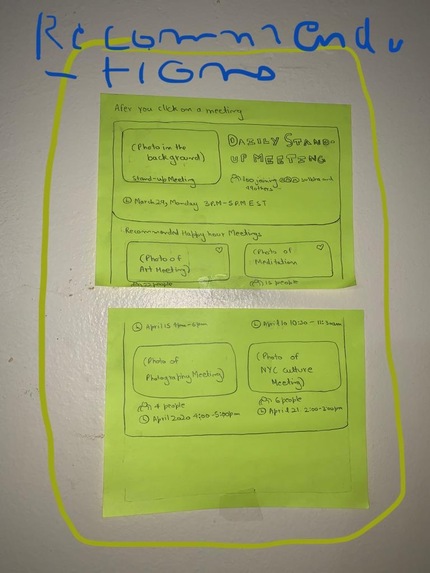 Recommendu
-tions
Afer you click on a meeting
(Photo in the
background)
Stand-up Meeting
DAZILY STAND-
UP MEETING
100 joining
March 29, Monday 3P.M-5P.M EST
Recommended Happy hour Meetings
(Photo of
Art Meeting)
(Photo of
Meditation
12 people
April 15
April 10 10:30 -
(Photo of
Photography Meeting)
(Photo of
NYC culture
Meeting)
4 people
6 people
April 2020 4:00-5:00pm
April 21 2:00-